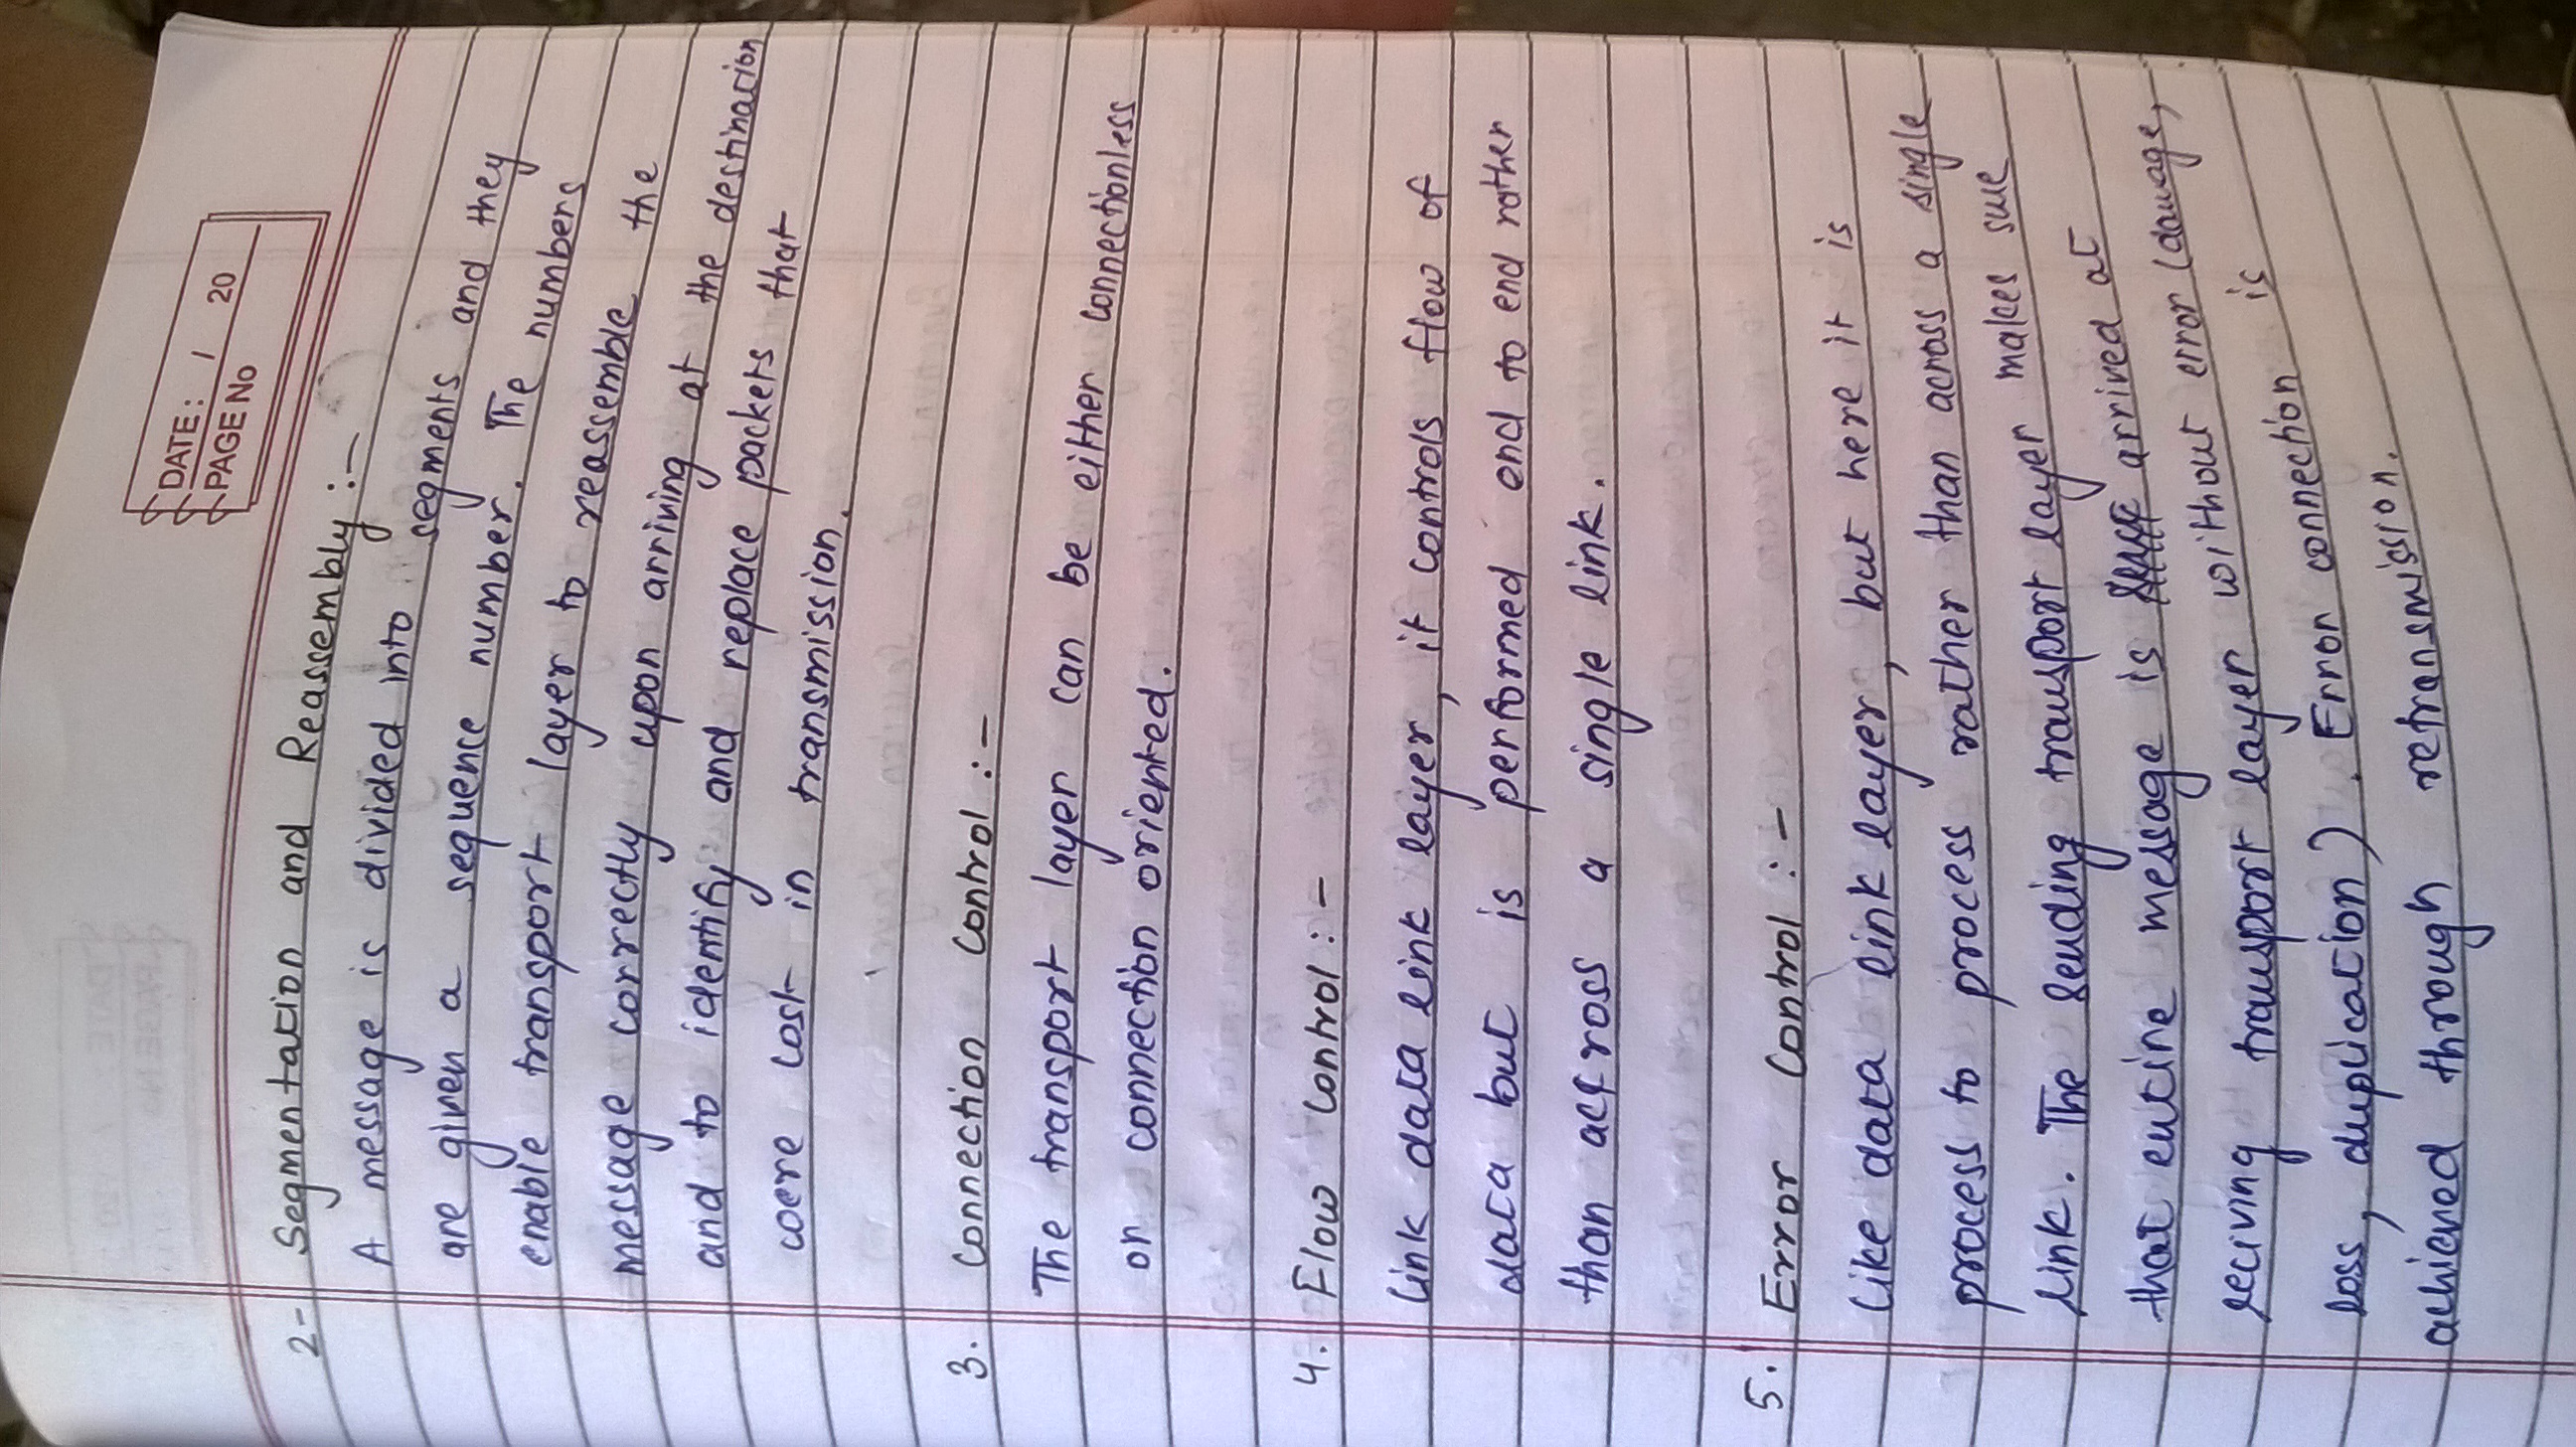 DATE: / 20
PAGE No
2- Segmentation and Reassembly :-
A message is divided into segments and they
are given a sequence number. The numbers
enable transport layer to reassemble the
message correctly upon arriving at the destination
and to identify and replace packets that
were lost in transmission.
3. Connection Control :-
The transport layer can be either connectionless
or connection oriented.
4. Flow Control :-
Link data link layer, it controls flow of
data but is performed end to end rather
than accross a single link.
5. Error Control :-
Like data link layer, but here it is
process to process rather than across a single
link. The sending transport layer makes sure
that entire message is arrived at
reciving transport layer without error (damage,
loss, duplication). Error connection is
achieved through retransmission.